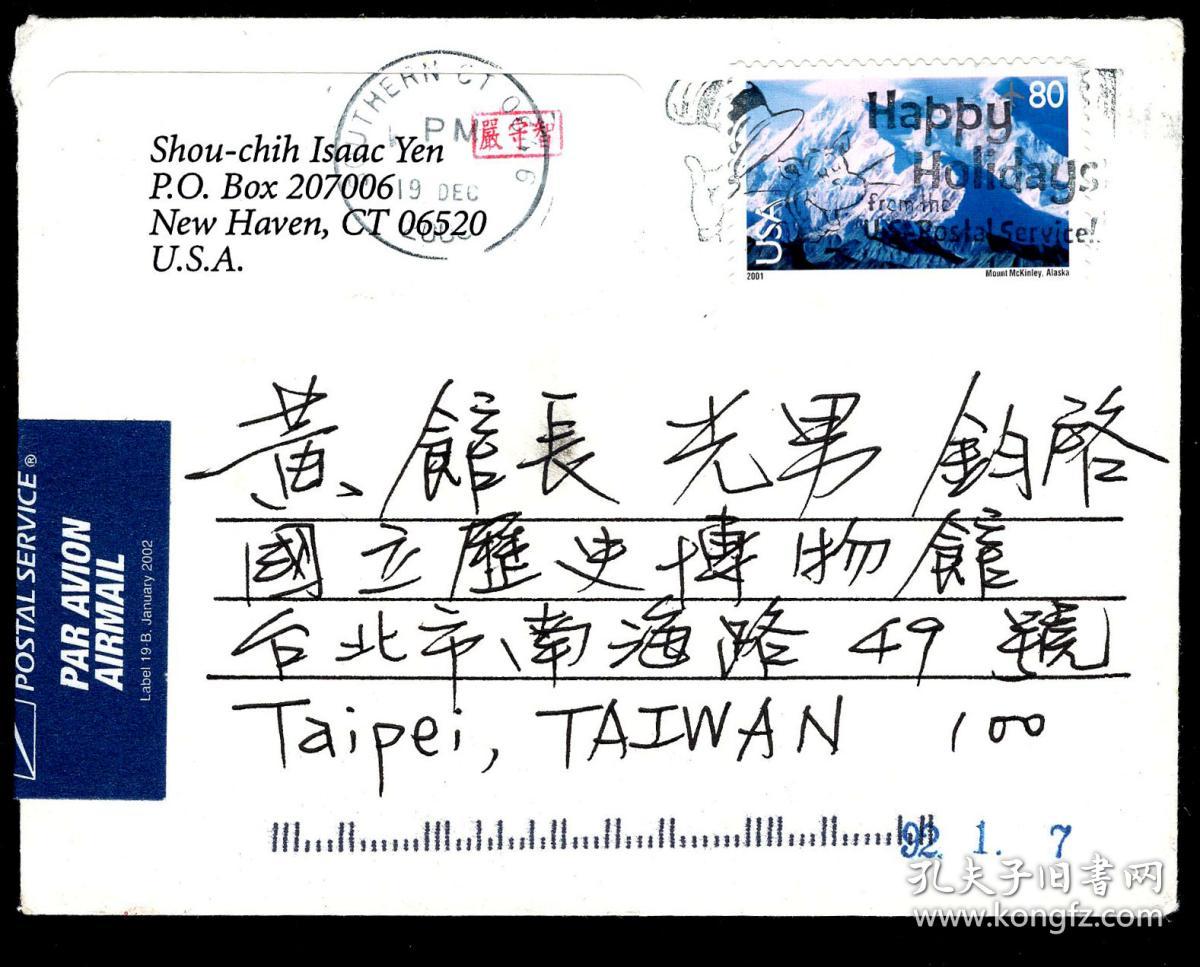 Shou-chih Isaac Yen
P.O. Box 207006
New Haven, CT 06520
U.S.A.
SOUTHERN CT
PM
19 DEC
嚴守智
80
Happy
Holidays
from the
U.S. Postal Service!
USA
2001
Mount McKinley, Alaska
黃館長 光男 鈞啓
國立歷史博物館
台北市南海路 49 號
Taipei, TAIWAN 100
POSTAL SERVICE®
PAR AVION
AIRMAIL
Label 19-B, January 2002
92. 1. 7
孔夫子旧书网
www.kongfz.com